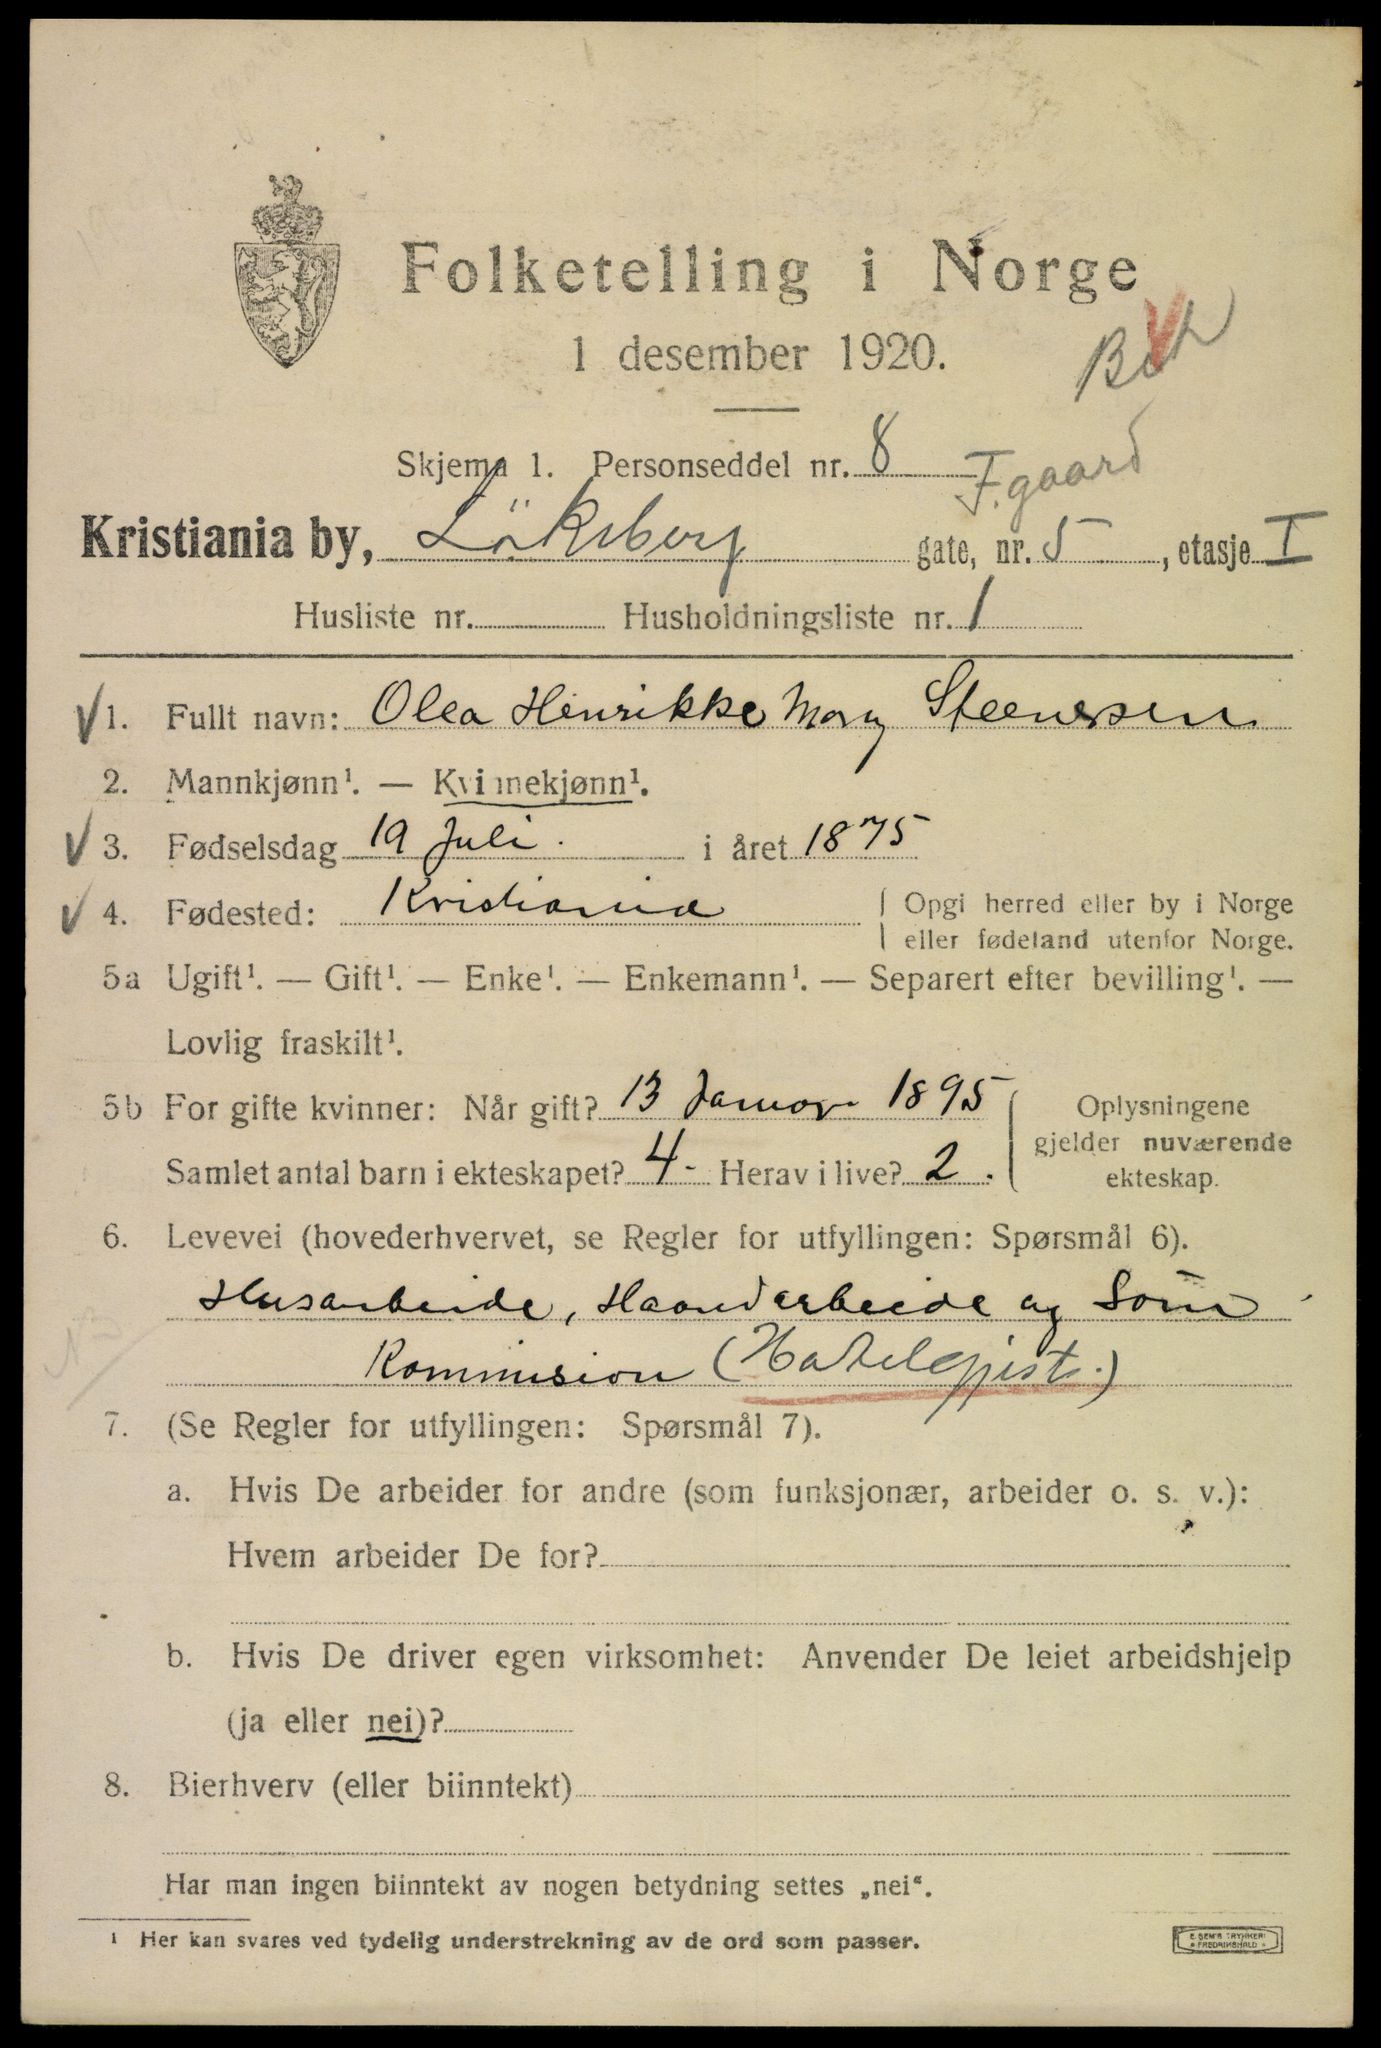 Folketelling i Norge
1 desember 1920.
Skjema 1. Personseddel nr. 8
F.gaard
Kristiania by, Lökeberg gate, nr. 5, etasje I
Husliste nr. Husholdningsliste nr. 1
1. Fullt navn: Olea Henrikke Mary Steenersen
2. Mannkjønn¹. — Kvinnekjønn¹.
3. Fødselsdag 19 Juli. i året 1875
4. Fødested: Kristiania ( Opgi herred eller by i Norge
eller fødeland utenfor Norge.
5a Ugift¹. — Gift¹. — Enke¹. — Enkemann¹. — Separert efter bevilling¹. —
Lovlig fraskilt¹.
5b For gifte kvinner: Når gift? 13 Januar 1895
Samlet antal barn i ekteskapet? 4- Herav i live? 2.
Oplysningene
gjelder nuværende
ekteskap.
6. Levevei (hovederhvervet, se Regler for utfyllingen: Spørsmål 6).
Husarbeide, Haandarbeide og Söm
Kommision (Hotelgjest.)
7. (Se Regler for utfyllingen: Spørsmål 7).
a. Hvis De arbeider for andre (som funksjonær, arbeider o. s. v.):
Hvem arbeider De for?
b. Hvis De driver egen virksomhet: Anvender De leiet arbeidshjelp
(ja eller nei)?
8. Bierhverv (eller biinntekt)
Har man ingen biinntekt av nogen betydning settes „nei“.
¹ Her kan svares ved tydelig understrekning av de ord som passer.
E. SEM'S TRYKKERI
FREDRIKSHALD